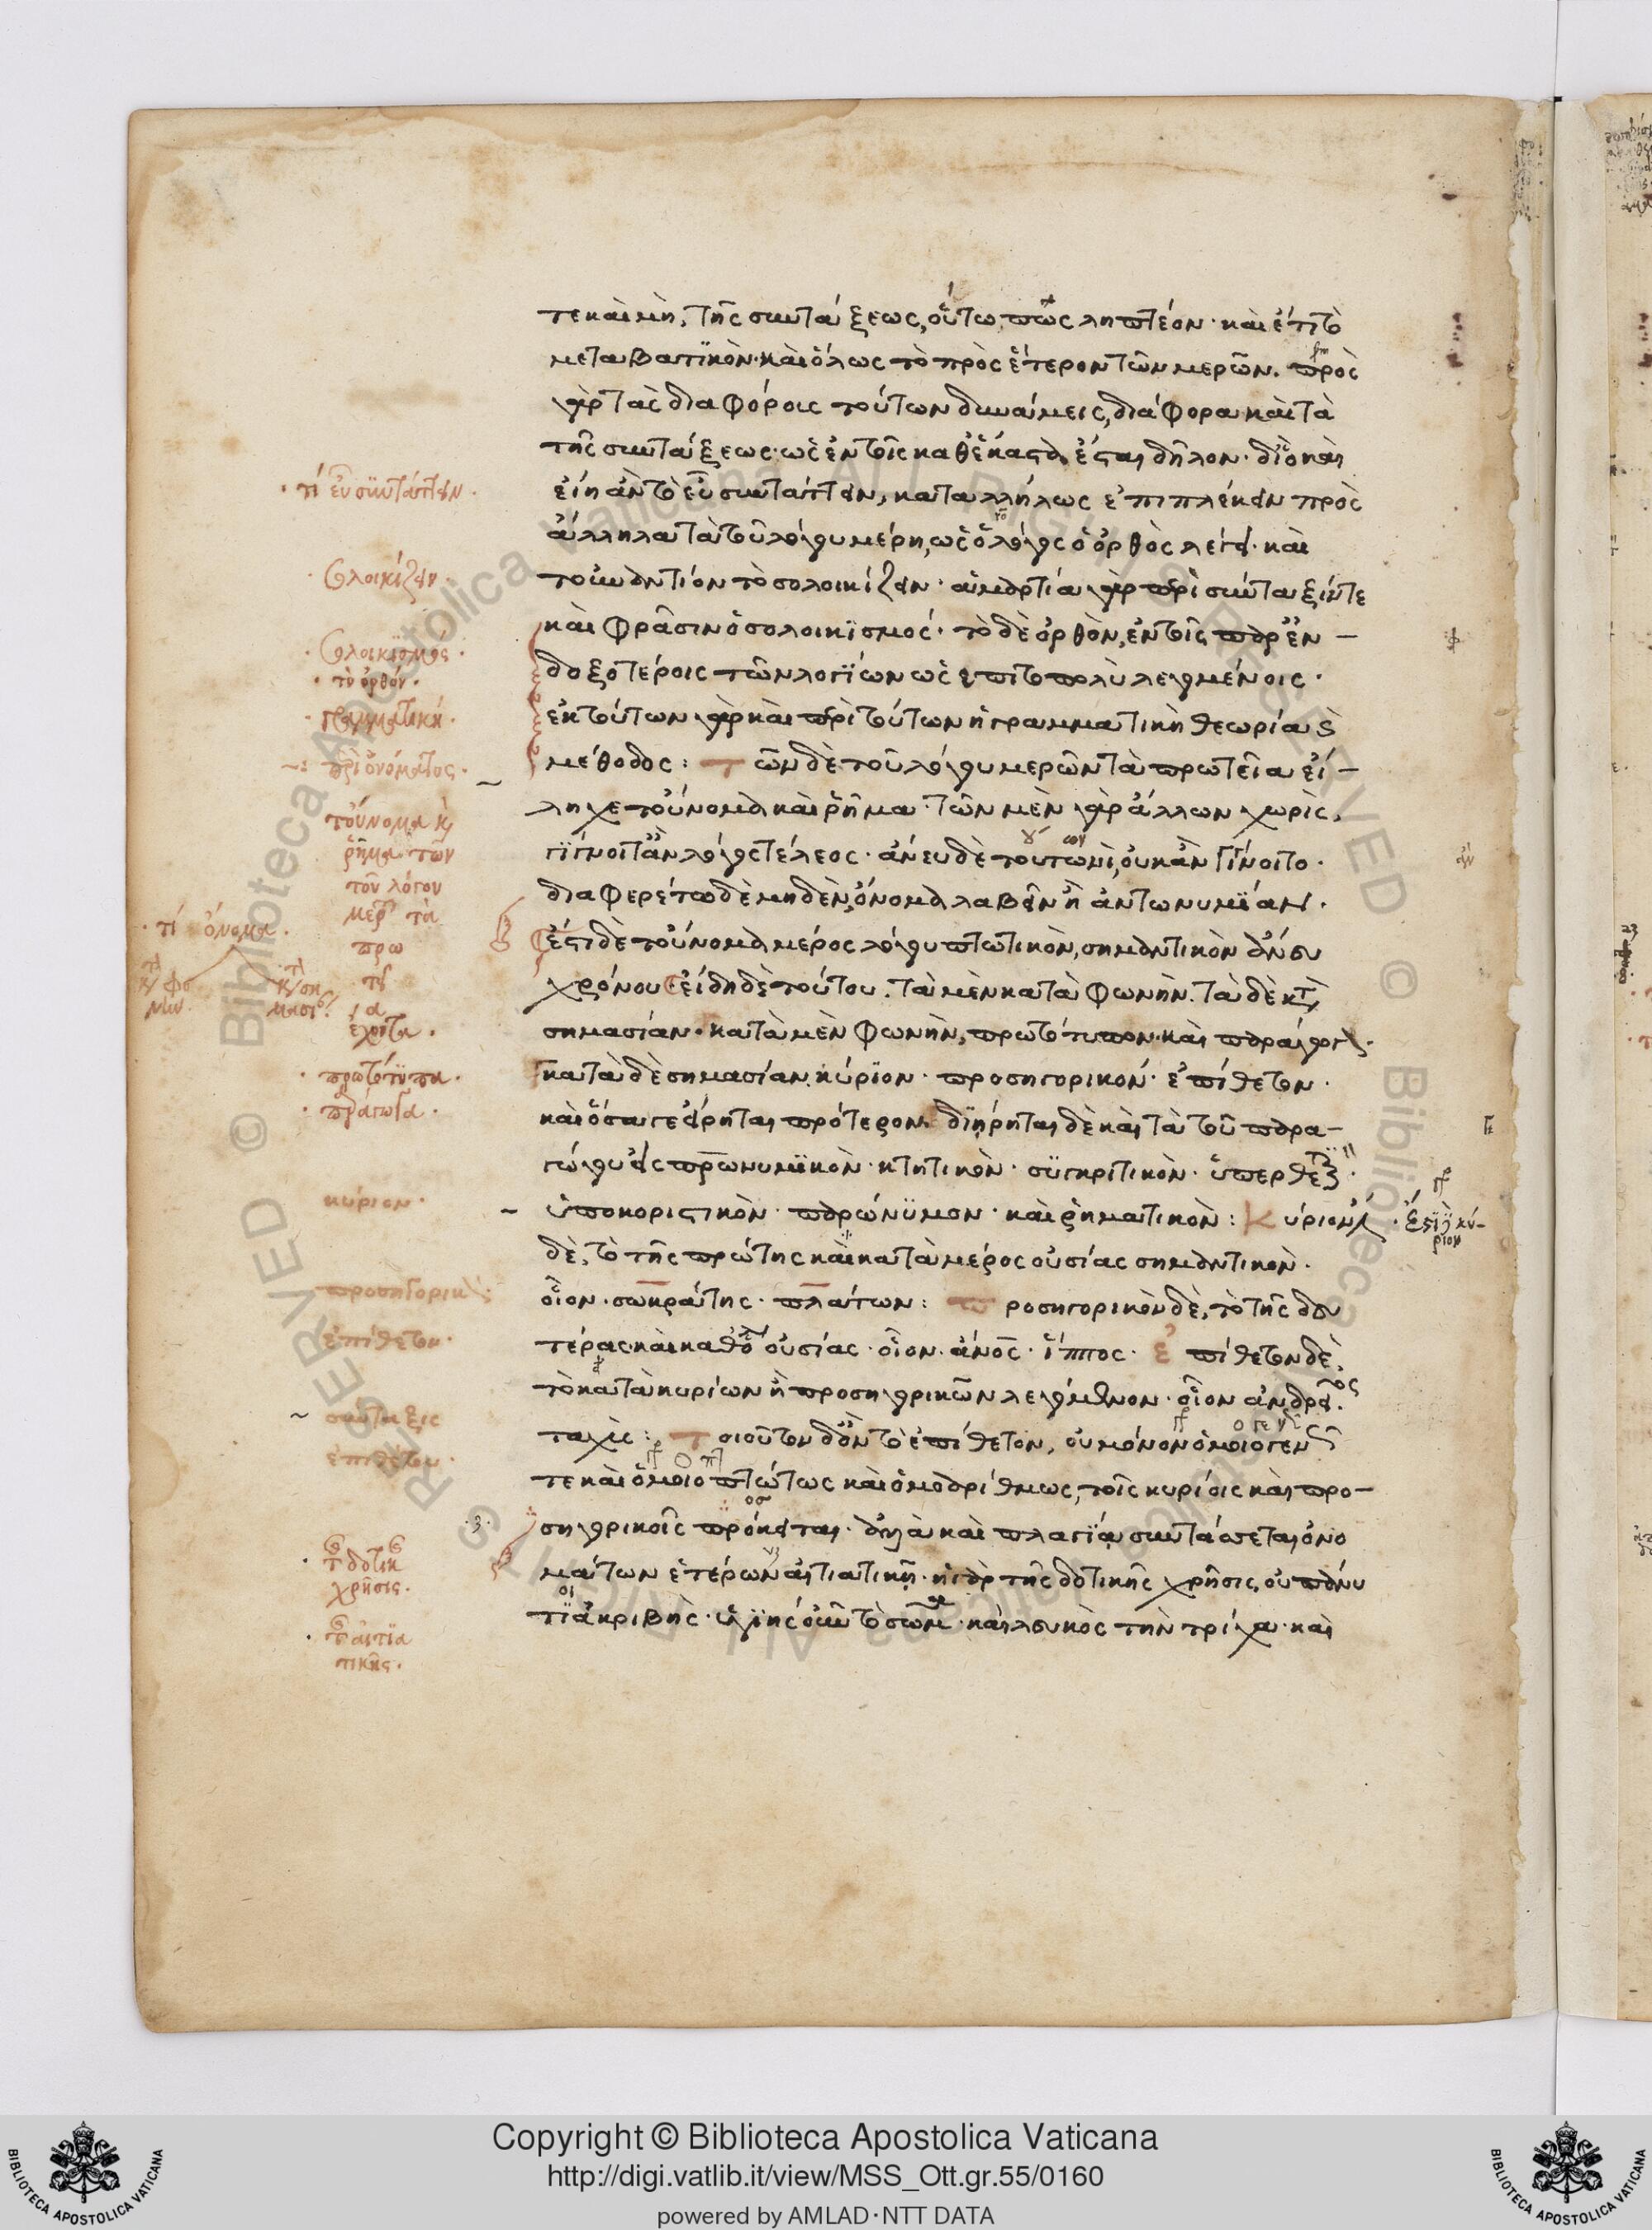 τε καὶ μὴ, τῆς συντάξεως, οὕτω πως ληπτέον· καὶ ἔτι τὸ
μεταβατϊκὸν· καὶ ὅλως τὸ πρὸς ἕτερον τῶν μερῶν. πρὸς
γὰρ τὰς διαφόροις τούτων δυνάμεις, διάφορα καὶ τὰ
τῆς συντάξεως· ὡς ἐν τοῖς καθέκαστα ἔσται δῆλον· διὸ καὶ
· τί εὖ συντάττειν ·
εἴη ἂν τὸ εὖ συντάττειν, καταλλήλως ἐπιπλέκειν πρὸς
ἄλληλα τὰ τοῦ λόγου μέρη, ὡς ὁ λόγος ὁ ὀρθὸς λέγει· καὶ
· σολοικίζειν ·
τοὐναντίον τὸ σολοικίζειν· ἁμαρτία γὰρ περὶ σύνταξίν τε
καὶ φρᾶσιν ὁ σολοικϊσμός· τὸ δὲ ὀρθὸν, ἐν τοῖς παρ' ἐν–
· σολοικισμός ·
· τὸ ὀρθόν ·
δοξοτέροις τῶν λογίων ὡς ἐπιτοπολὺ λεγομένοις·
· γραμματική ·
ἐκ τούτων γὰρ καὶ περὶ τούτων ἡ γραμματικὴ θεωρία καὶ
περὶ ὀνόματος ·
μέθοδος: Τῶν δὲ τοῦ λόγου μερῶν τὰ πρωτεῖα εἴ–
τοὔνομα καὶ
ληχε τοὔνομα καὶ ῥῆμα· τῶν μὲν γὰρ ἄλλων χωρὶς,
ῥῆμα τῶν
γίγνοιτ' ἂν λόγος τέλεος· ἄνευ δὲ τουτωνὶ, οὐκ ἂν γίνοιτο·
τοῦ λόγου
διαφερέτω δὲ μηδὲν, ὄνομα λαβεῖν ἢ ἀντωνυμίαν·
μερῶν τὰ
· τί ὄνομα ·
ἔστι δὲ τοὔνομα μέρος λόγου πτωτικὸν, σημαντικὸν ἄνευ
πρω
τεῖ
χρόνου εἴδη δὲ τούτου· τὰ μὲν κατὰ φωνὴν· τὰ δὲ κατὰ
κατὰ φω
νὴν
κατὰ ση
μασίαν
α
ἔχοντα ·
σημασίαν· κατὰ μὲν φωνὴν, πρωτότυπον· καὶ παράγωγον·
· πρωτότυπα ·
κατὰ δὲ σημασίαν, κύριον· προσηγορικόν· ἐπίθετον·
· παράγωγα ·
καὶ ὅσα γε εἴρηται πρότερον· διῄρηται δὲ καὶ τὰ τοῦ παρα–
γώγου εἰς πατρωνυμικὸν· κτητικὸν· συγκριτικὸν· ὑπερθετικόν·
κύριον ·
ὑποκοριστικὸν· παρώνυμον· καὶ ῥηματικὸν: Κύριον
· ἔστι κύ–
ριον
δὲ, τὸ τῆς πρώτης καὶ κατὰ μέρος οὐσίας σημαντικὸν·
προσηγορικὸν
οἷον· σωκράτης· πλάτων: Προσηγορικὸν δὲ, τὸ τῆς δευ
ἐπίθετον ·
τέρας καὶ καθόλου οὐσίας· οἷον· ἄνος· ἵππος· Ἐπίθετον δὲ,
τὸ κατὰ κυρίων ἢ προσηγορικῶν λεγόμενον· οἷον ἀνδρεῖος·
σύνταξις
ταχύς: Τοιοῦτον δ' ὂν τὸ ἐπίθετον, οὐ μόνον ὁμοιογενῶς
ἐπιθέτων ·
τε καὶ ὁμοιοπτώτως καὶ ὁμοαρίθμως, τοῖς κυρίοις καὶ προ–
σηγορικοῖς πρόκειται· ἀλλὰ καὶ πλαγίᾳ συντάσσεται ὀνο
· τῆς δοτικῆς
χρῆσις ·
μάτων ἑτέρων αἰτιατικῇ· ἡ γὰρ τῆς δοτικῆς χρῆσις, οὐ πάνυ
τι ἀκριβής· ὑγιὴς οὖν τὸ σῶμα· καὶ λευκὸς τὴν τρίχα· καὶ
· τῆς αἰτια
τικῆς ·
© Biblioteca Apostolica Vaticana
Copyright © Biblioteca Apostolica Vaticana
http://digi.vatlib.it/view/MSS_Ott.gr.55/0160
powered by AMLAD·NTT DATA
BIBLIOTECA APOSTOLICA VATICANA
BIBLIOTECA APOSTOLICA VATICANA